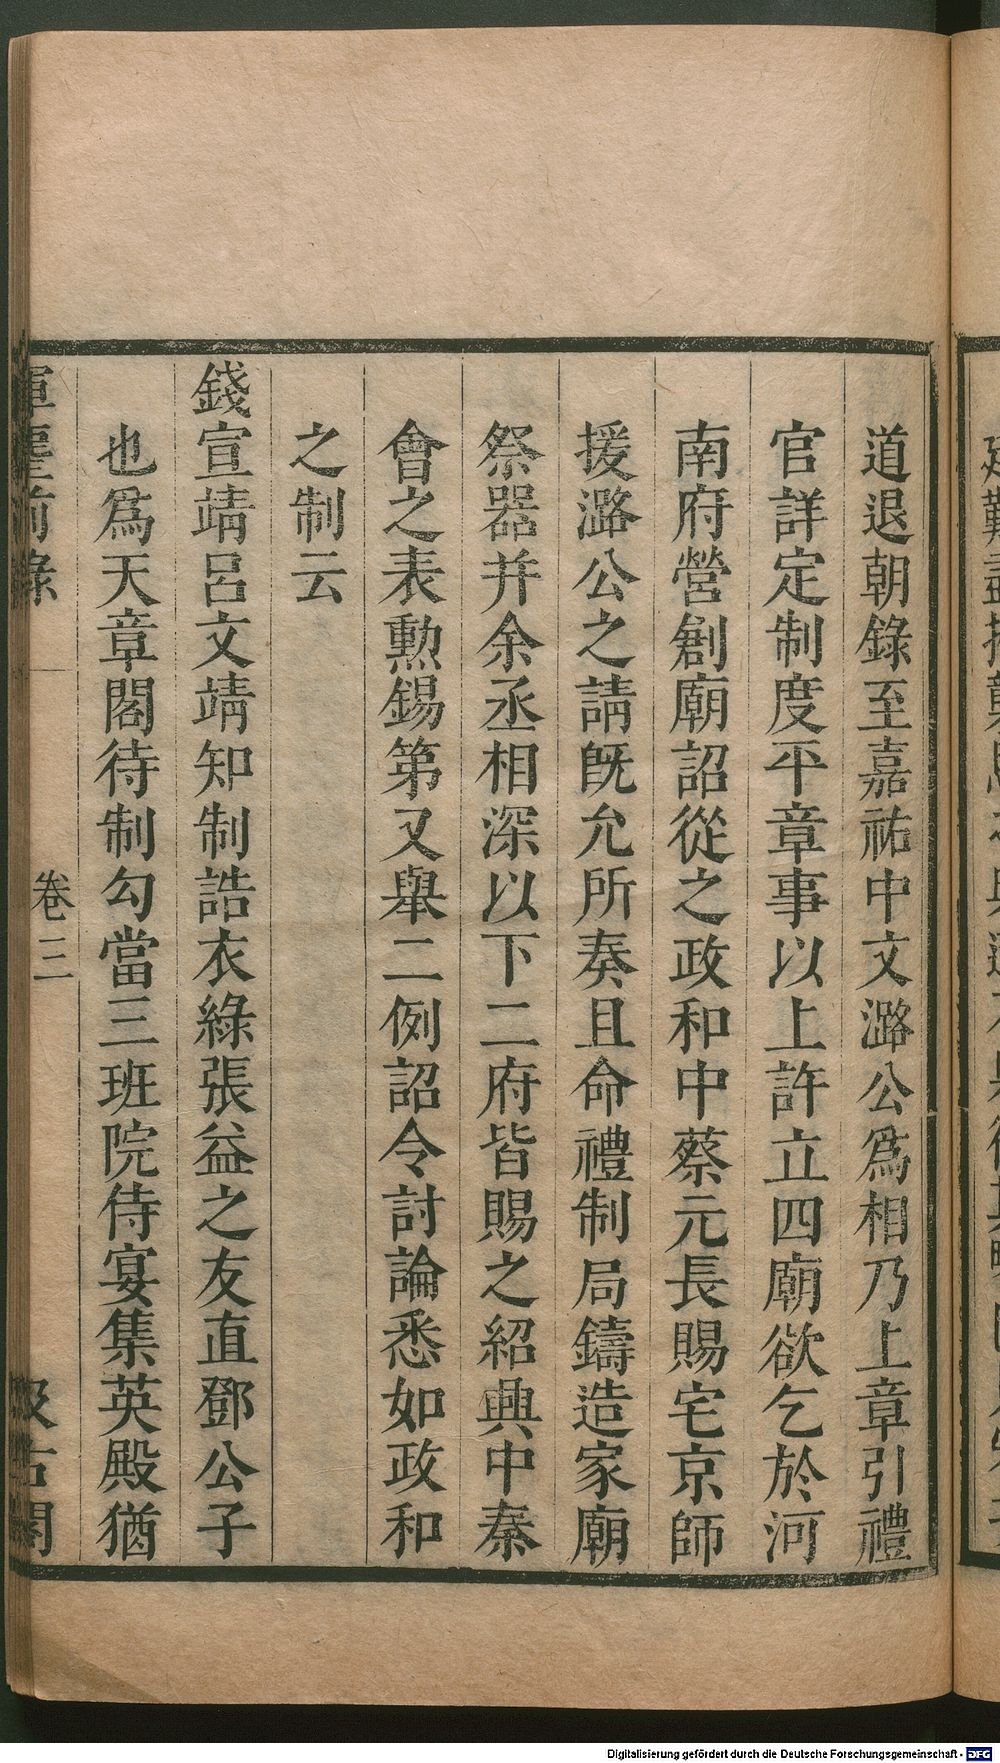 道退朝錄至嘉祐中文潞公爲相乃上章引禮
官詳定制度平章事以上許立四廟欲乞於河
南府營創廟詔從之政和中蔡元長賜宅京師
援潞公之請旣允所奏且命禮制局鑄造家廟
祭器并余丞相深以下二府皆賜之紹興中秦
會之表勲錫第又舉二例詔令討論悉如政和
之制云
錢宣靖呂文靖知制誥衣綠張益之友直鄧公子
也爲天章閣待制勾當三班院侍宴集英殿猶
揮麈前錄
卷三
汲古閣
Digitalisierung gefördert durch die Deutsche Forschungsgemeinschaft - DFG